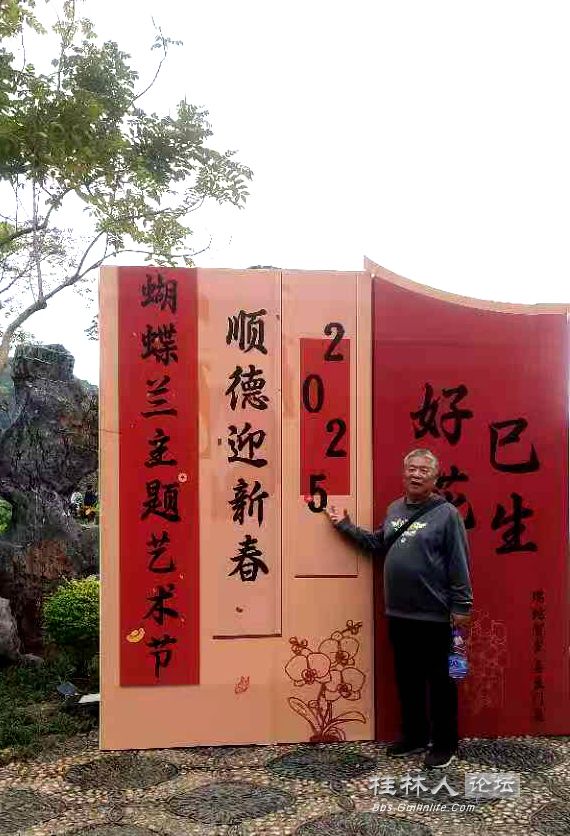 2025
顺德迎新春
蝴蝶兰主题艺术节
巳生
好花
桂林人论坛
Bbs.Guilinlife.Com